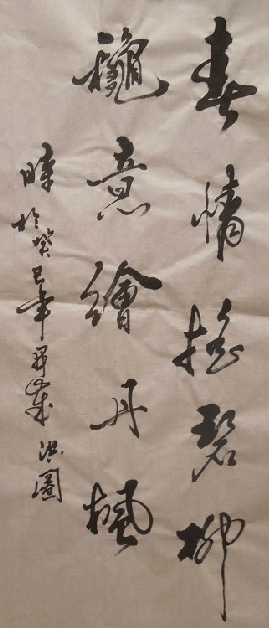 春情搖碧柳
龝意繪丹楓
時於癸巳年洪圖